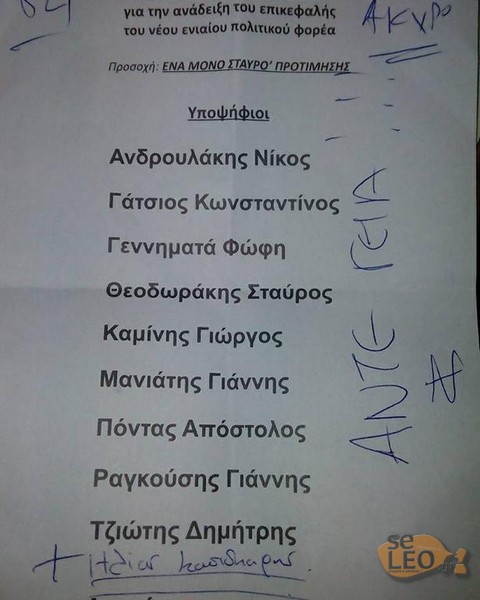 64
για την ανάδειξη του επικεφαλής
του νέου ενιαίου πολιτικού φορέα
ΑΚΥΡΟ
Προσοχή: ΕΝΑ ΜΟΝΟ ΣΤΑΥΡΟ' ΠΡΟΤΙΜΗΣΗΣ
Υποψήφιοι
Ανδρουλάκης Νίκος
Γάτσιος Κωνσταντίνος
Γεννηματά Φώφη
Θεοδωράκης Σταύρος
Καμίνης Γιώργος
Μανιάτης Γιάννης
Πόντας Απόστολος
Ραγκούσης Γιάννης
Τζιώτης Δημήτρης
+ Ηλίας Κασιδιάρης
ΑΝΤΕ ΓΕΙΑ
se
LEO.gr